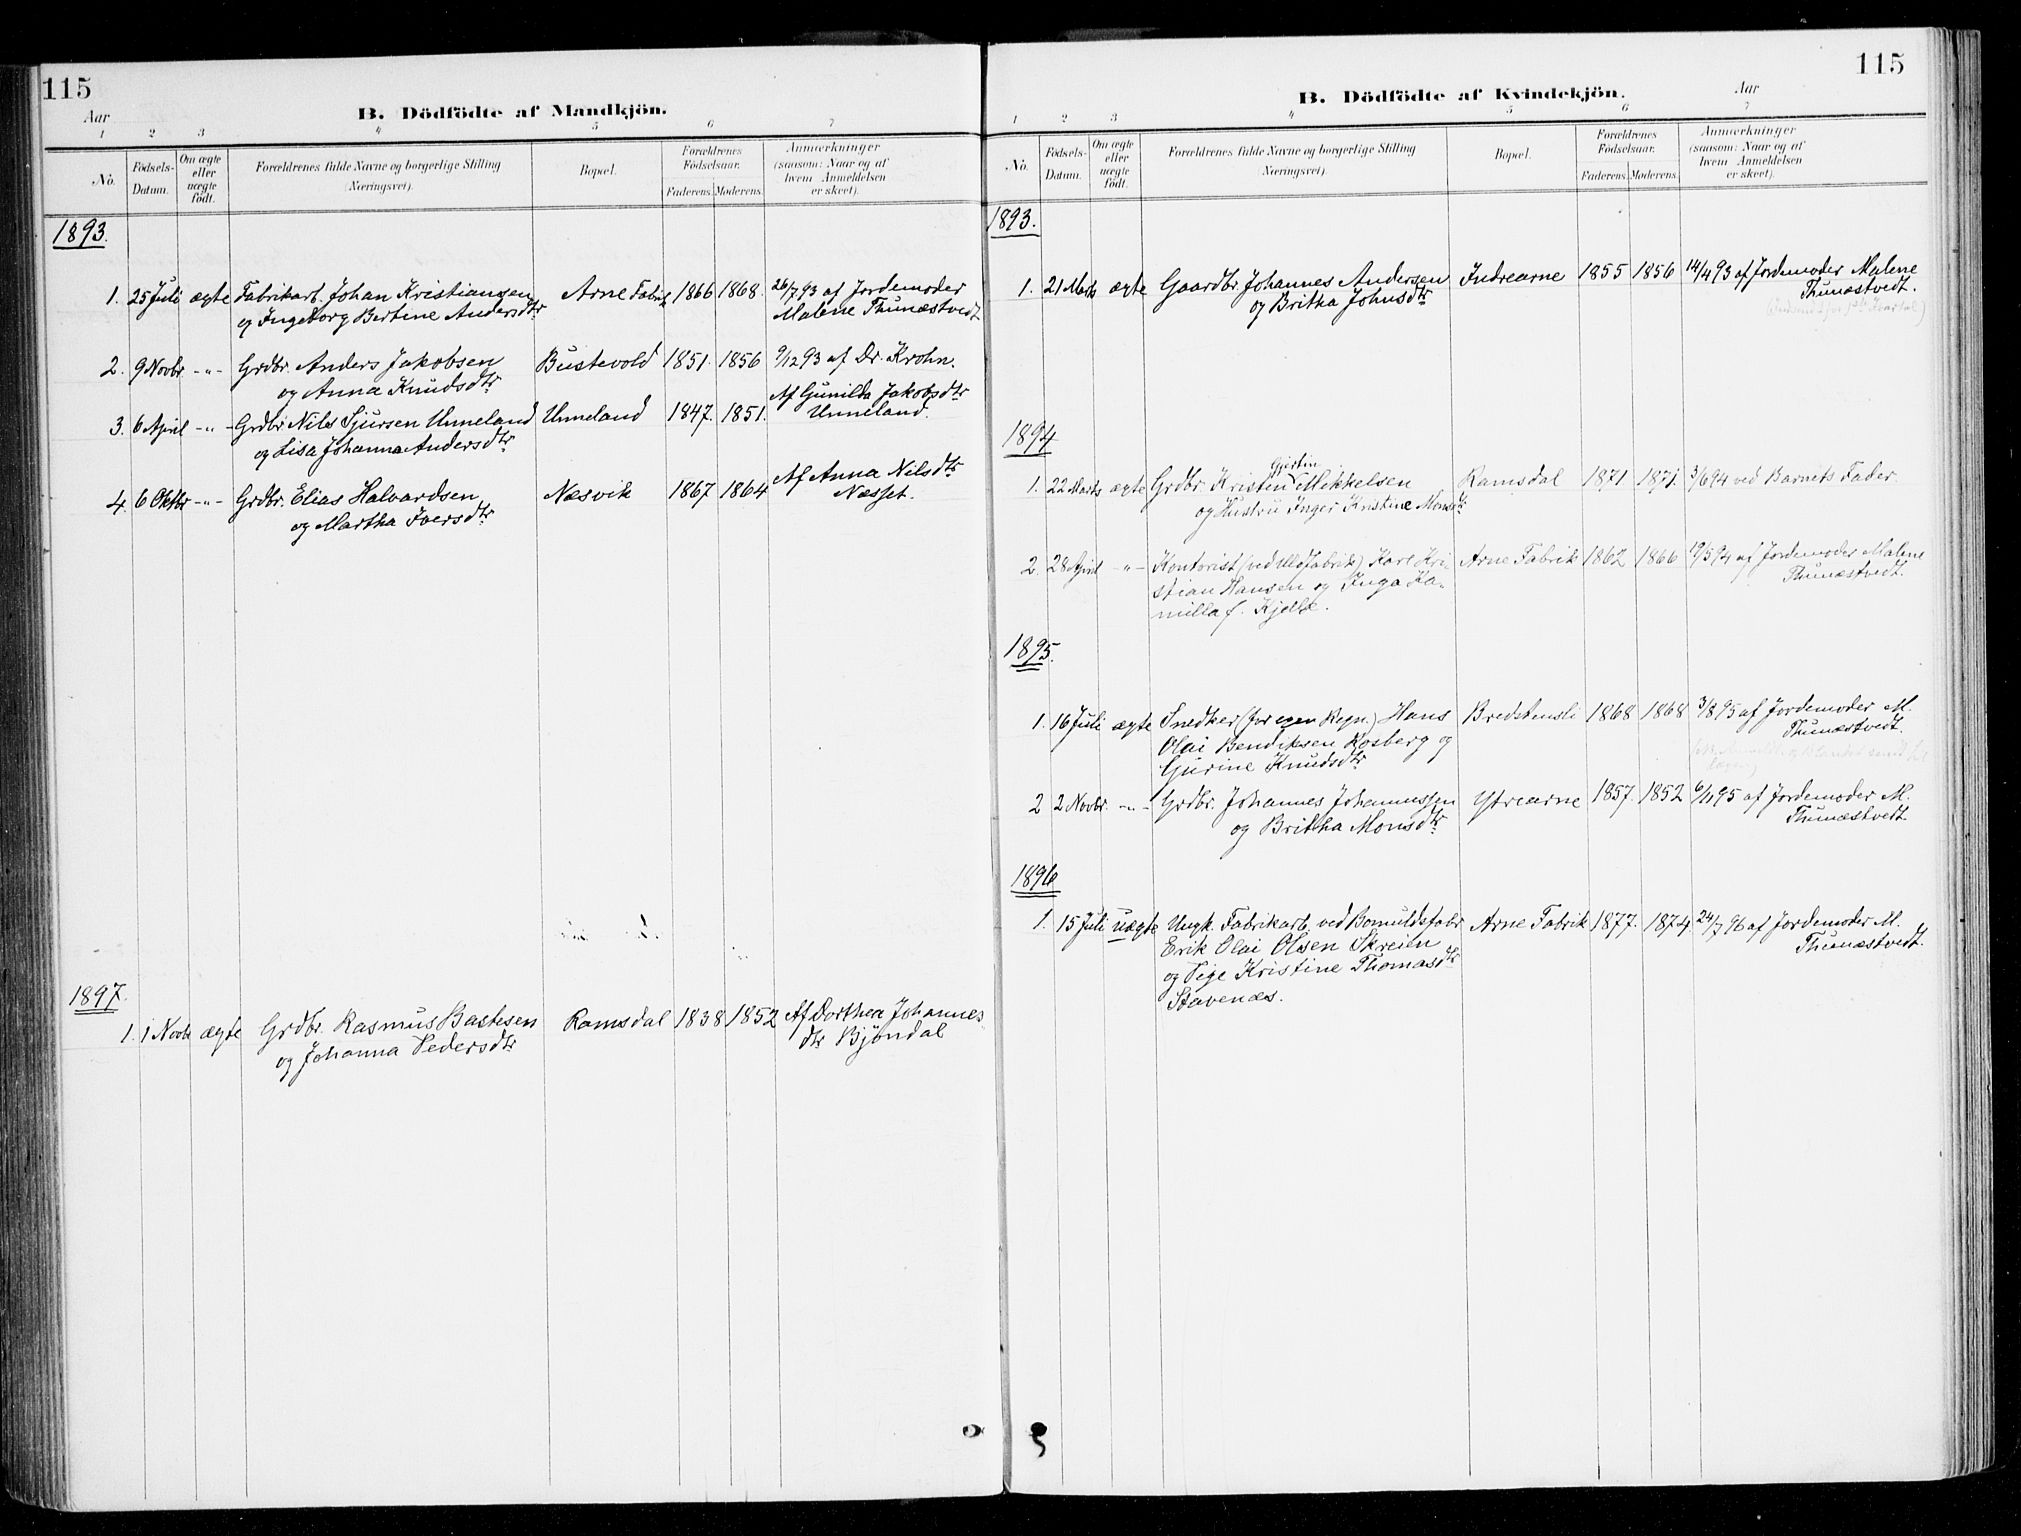 115
B. Dödfödte af Mandkjön.
Aar
1 2 3 4 5 6 7
No.
Födsels-Datum.
Om ægte eller uægte födt.
Forældrenes fulde Navne og borgerlige Stilling (Næringsvei).
Bopæl.
Forældrenes Födselsaar.
Faderens. Moderens.
Anmærkninger (saasom: Naar og af hvem Anmeldelsen er skeet).
1893.
1. 25 Juli ægte Fabrikarb. Johan Kristiansen Arne Fabrik 1866 1868. 26/7 93 af Jordemoder
og Ingeborg Bertine Andersdtr Malene Thunæstvedt
2. 9 Novbr. -"- Grdbr. Anders Jakobsen Bustevold 1851. 1856 9/12 93 af Dr. Krohn.
og Anna Knudsdtr
3. 6 April -"- Grdbr Nils Sjursen Unneland Unneland 1847. 1851. Af Gunilda Jakobsdtr
og Lisa Johanna Andersdtr Unneland.
4. 6 Oktbr -"- Grdbr. Elias Halvardsen Næsvik 1867 1864 Af Anna Nilsdtr
og Martha Iversdtr Næsset.
1897.
1. 1 Novbr ægte Grdbr. Rasmus Bastesen Ramsdal 1838 1852 Af Dorthea Johannes
og Johanna Pedersdtr dtr Bjöndal
115
B. Dödfödte af Kvindekjön.
Aar
1 2 3 4 5 6 7
No.
Födsels-Datum.
Om ægte eller uægte födt.
Forældrenes fulde Navne og borgerlige Stilling (Næringsvei).
Bopæl.
Forældrenes Födselsaar.
Faderens. Moderens.
Anmærkninger (saasom: Naar og af hvem Anmeldelsen er skeet).
1893.
1. 21 Marts ægte Gaardbr. Johannes Andersen Indrearne 1855 1856 14/4 93 af Jordemoder Malene
og Britha Johnsdtr Thunæstvedt.
1894
Gjertin
1. 22 Marts ægte Grdbr. Kristen Mikkelsen Ramsdal 1871 1871. 3/6 94 ved Barnets Fader.
og Hustru Inger Kristine Monsdtr
2. 28 April -"- Kontorist (ved Uldfabrik) Karl Kri- Arne Fabrik 1862 1866 19/5 94 af Jordemoder Malene
stian Hansen og Inga Ka- Thunæstvedt.
milla f. Kjelle.
1895.
1. 16 Juli ægte Snedker (for egen Regn.) Hans Bredstensli 1868 1868 3/8 95 af Jordemoder M.
Olai Bendiksen Rosberg og Thunæstvedt.
Gurine Knudsdtr
2 2 Novbr. -"- Grdbr. Johannes Johannessen Ytrearne 1857. 1852 6/11 95 af Jordemoder M.
og Britha Monsdtr Thunæstvedt.
1896
1. 15 Juli uægte Ungk. Fabrikarb. ved Bomuldsfabr Arne Fabrik 1877. 1874. 24/7 96 af Jordemoder M.
Erik Olai Olsen Skreien Thunæstvedt.
og Pige Kristine Thomasdtr
Stavenæs.